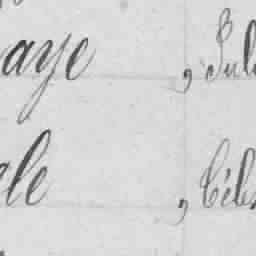 aye , Jul
le , Céles